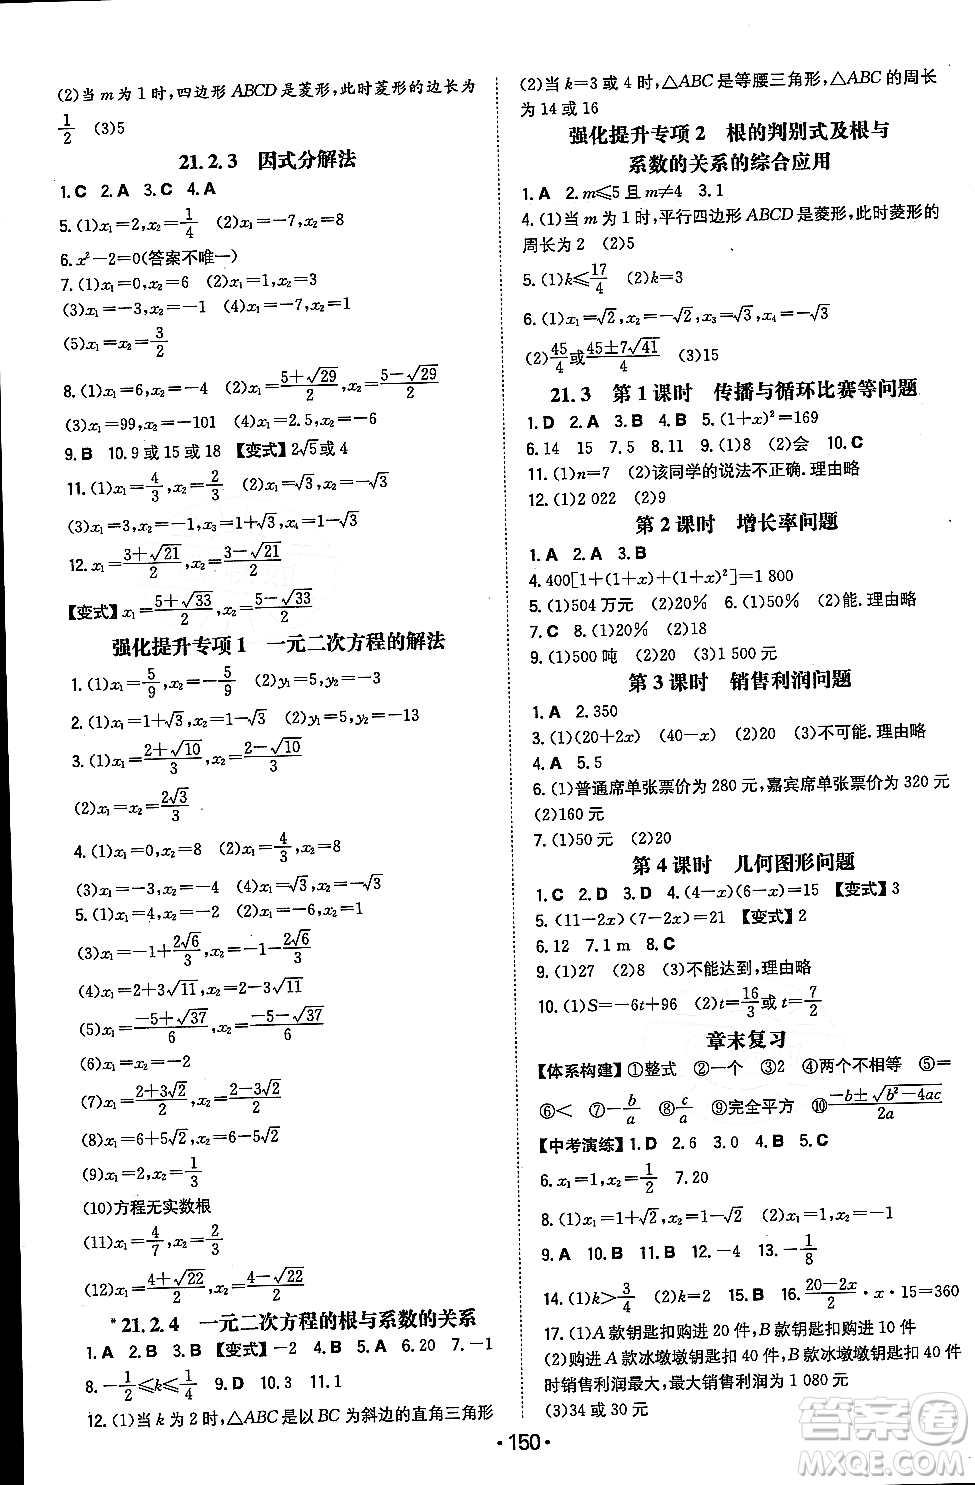 (2)当 m 为 1 时,四边形 ABCD 是菱形,此时菱形的边长为
1/2 (3)5
21.2.3 因式分解法
1.C 2.A 3.C 4.A
5.(1)x₁=2,x₂=1/4 (2)x₁=-7,x₂=8
6.x²-2=0(答案不唯一)
7.(1)x₁=0,x₂=6 (2)x₁=3,x₂=9
(3)x₁=-3,x₂=-1 (4)x₁=-7,x₂=1
(5)x₁=x₂=3/2
8.(1)x₁=6,x₂=-4 (2)x₁=(5+√29)/2,x₂=(5-√29)/2
(3)x₁=99,x₂=-101 (4)x₁=2.5,x₂=3
9.B 10.9 或 15 或 18 【变式】2√5或 4
11.(1)x₁=4/3,x₂=2/3 (2)x₁=√3,x₂=-√3
(3)x₁=3,x₂=-1,x₃=1+√3,x₄=1-√3
12.x₁=(3+√21)/2,x₂=(3-√21)/2
【变式】x₁=(5+√33)/2,x₂=(5-√33)/2
强化提升专项 1 一元二次方程的解法
1.(1)x₁=5/9,x₂=-5/9 (2)y₁=5,y₂=-3
2.(1)x₁=1+√3,x₂=1-√3 (2)y₁=5,y₂=-13
3.(1)x₁=(2+√10)/3,x₂=(2-√10)/3
(2)x₁=x₂=2√3/3
4.(1)x₁=0,x₂=8 (2)x₁=4/3,x₂=8
(3)x₁=-8,x₂=-4 (4)x₁=√3,x₂=-√3
5.(1)x₁=4,x₂=-2 (2)x₁=1,x₂=9
(3)x₁=-1+2√6/3,x₂=-1-2√6/3
(4)x₁=2+3√11,x₂=2-3√11
(5)x₁=(-5+√37)/6,x₂=(-5-√37)/6
(6)x₁=x₂=-2
(7)x₁=(2+3√2)/2,x₂=(2-3√2)/2
(8)x₁=6+5√2,x₂=6-5√2
(9)x₁=2,x₂=1/3
(10)方程无实数根
(11)x₁=4/7,x₂=2/3
(12)x₁=(4+√22)/2,x₂=(4-√22)/2
*21.2.4 一元二次方程的根与系数的关系
1.A 2.B 3.B 【变式】-2 4.B 5.A 6.20 7.-1
8.-1/2≤k≤1/4 9.D 10.3 11.1
12.(1)当 k 为 2 时,△ABC 是以 BC 为斜边的直角三角形
(2)当 k=3 或 4 时,△ABC 是等腰三角形,△ABC 的周长
为 14 或 16
强化提升专项 2 根的判别式及根与
系数的关系的综合应用
1.A 2.m≤5 且 m≠4 3.1
4.(1)当 m 为 1 时,平行四边形 ABCD 是菱形,此时菱形的
周长为 2 (2)5
5.(1)k≤17/4 (2)k=3
6.(1)x₁=√2,x₂=-√2,x₃=√3,x₄=-√3
(2)45/4或(45±7√41)/4 (3)15
21.3 第 1 课时 传播与循环比赛等问题
1.D 2.A 3.B 4.B 5.(1+x)²=169
6.14 15 7.5 8.11 9.(1)8 (2)会 10.C
11.(1)n=7 (2)该同学的说法不正确.理由略
12.(1)2 022 (2)9
第 2 课时 增长率问题
1.A 2.A 3.B
4.400[1+(1+x)+(1+x)²]=1 800
5.(1)504 万元 (2)20% 6.(1)20% (2)能.理由略
7.C 8.(1)20% (2)18
9.(1)500 吨 (2)20 (3)1 500 元
第 3 课时 销售利润问题
1.A 2.350
3.(1)(20+2x) (40-x) (2)20 (3)不可能.理由略
4.A 5.5
6.(1)普通席单张票价为 280 元,嘉宾席单张票价为 320 元
(2)160 元
7.(1)50 元 (2)20
第 4 课时 几何图形问题
1.C 2.D 3.D 4.(4-x)(6-x)=15 【变式】3
5.(11-2x)(7-2x)=21 【变式】2
6.12 7.1 m 8.C
9.(1)27 (2)8 (3)不能达到,理由略
10.(1)S=-6t+96 (2)t=16/3或 t=7/2
章末复习
【体系构建】①整式 ②一个 ③2 ④两个不相等 ⑤=
⑥< ⑦-b/a ⑧c/a ⑨完全平方 ⑩(-b±√(b²-4ac))/2a
【中考演练】1.D 2.6 3.0 4.B 5.C
6.x₁=1,x₂=1/2 7.20
8.(1)x₁=1+√2,x₂=1-√2 (2)x₁=2,x₂=-1
9.A 10.B 11.B 12.-4 13.-1/8
14.(1)k>3/4 (2)k=2 15.B 16.(20-2x)/2·x·15=360
17.(1)A 款钥匙扣购进 20 件,B 款钥匙扣购进 10 件
(2)购进 A 款冰墩墩钥匙扣 40 件,B 款冰墩墩钥匙扣 40 件
时销售利润最大,最大销售利润为 1 080 元
(3)34 或 30 元
·150·
答案圈
MXQE.COM